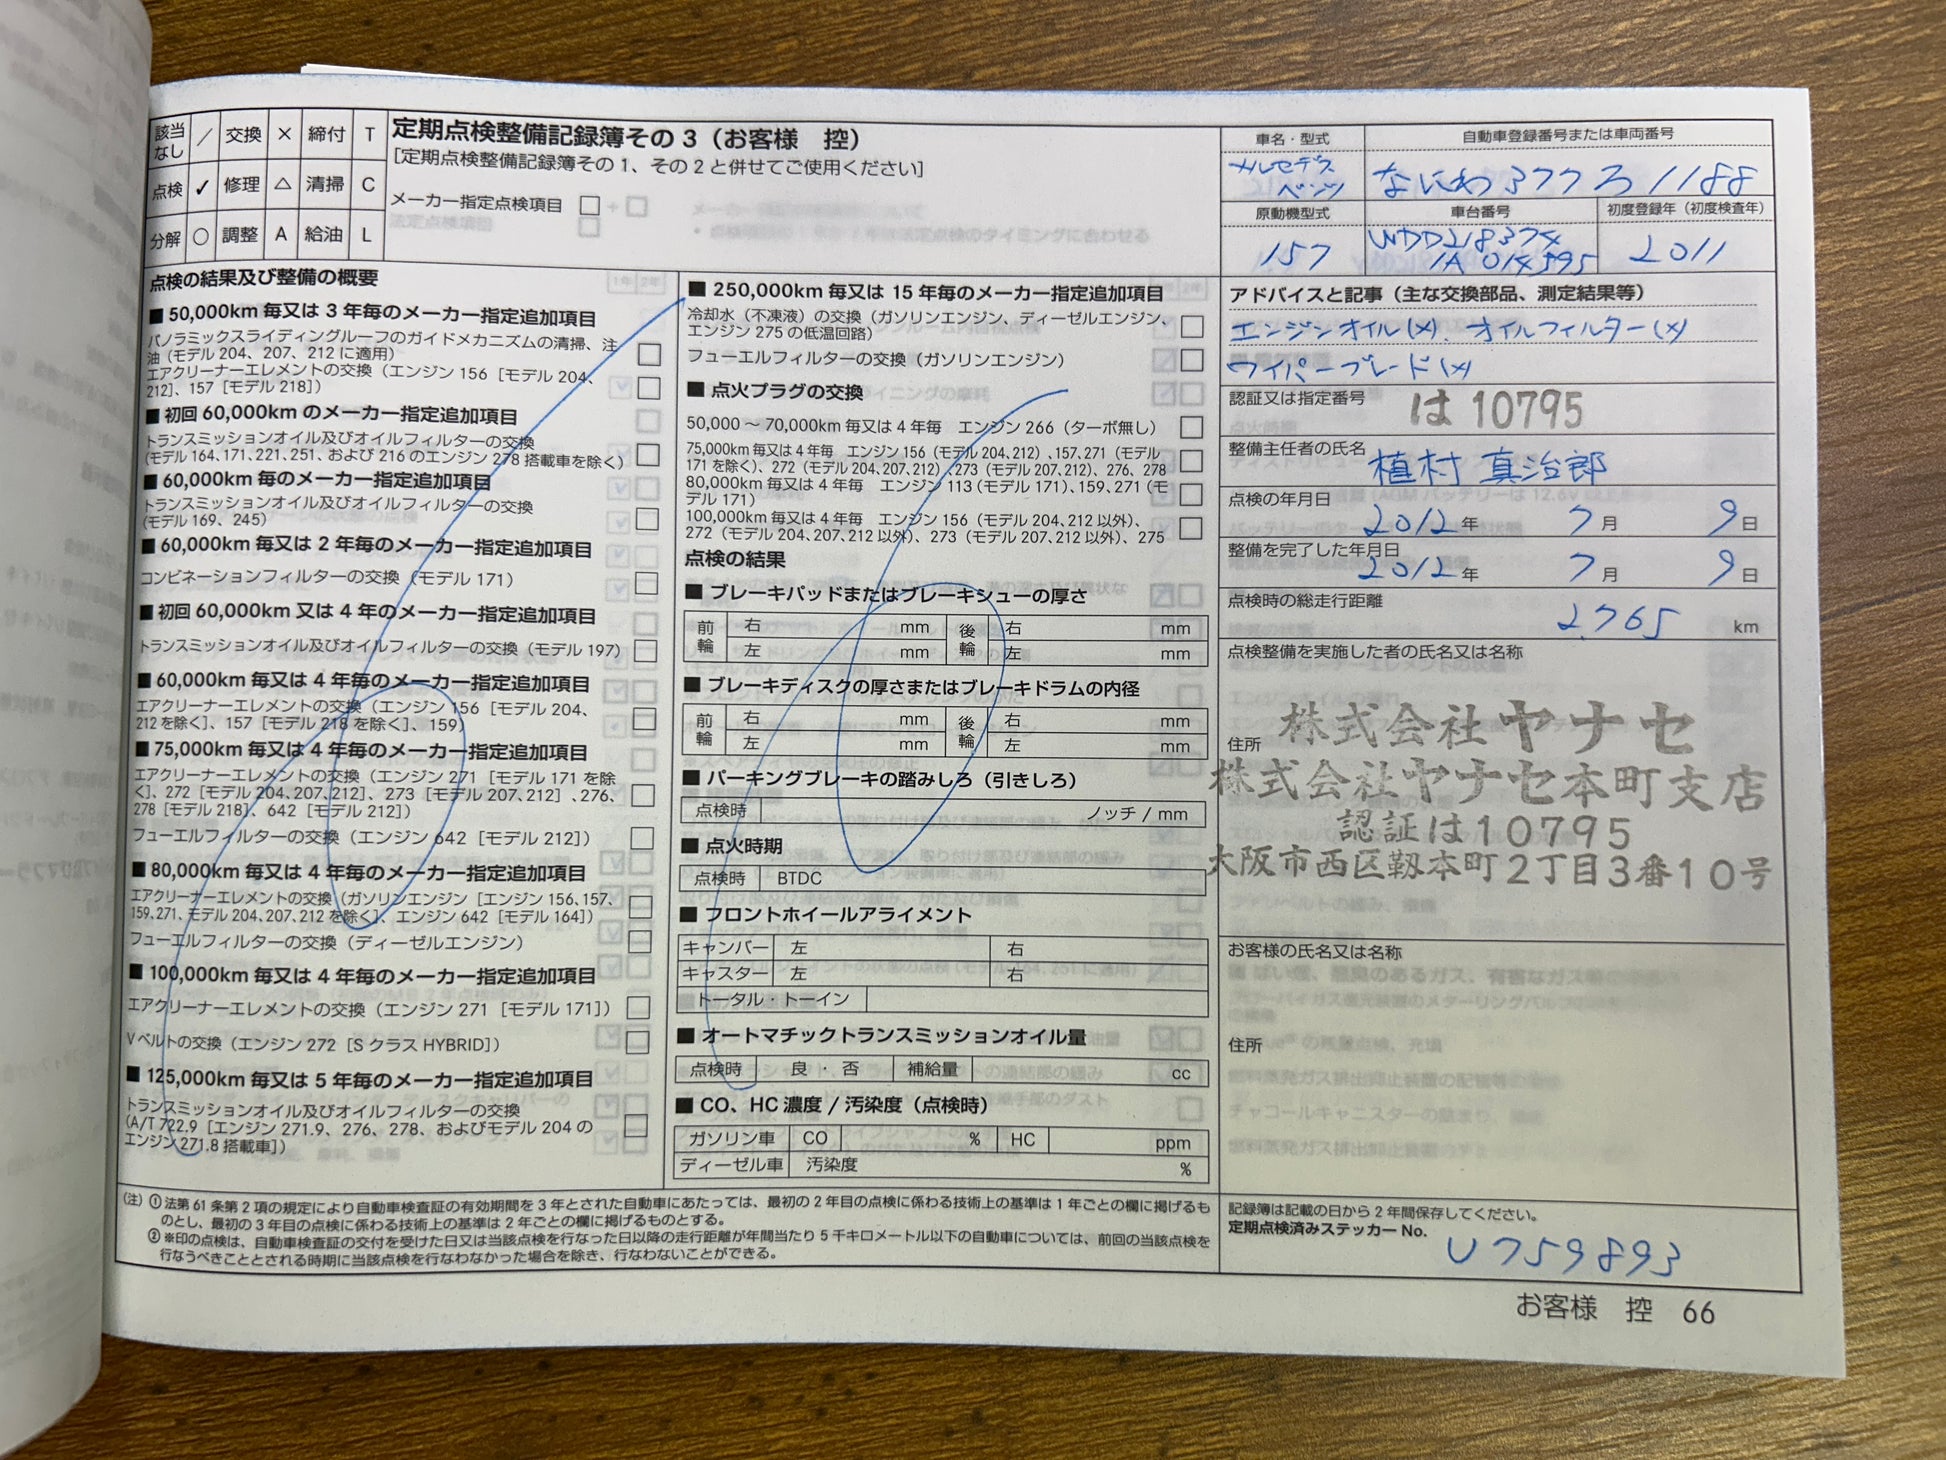 該当なし ／ 交換 × 締付 T
点検 ✓ 修理 △ 清掃 C
分解 ○ 調整 A 給油 L
定期点検整備記録簿その3（お客様　控）
［定期点検整備記録簿その1、その2と併せてご使用ください］
メーカー指定点検項目 □ + □
法定点検項目 □
車名・型式
メルセデス
ベンツ
自動車登録番号または車両番号
なにわ 377 ろ 1188
原動機型式
157
車台番号
WDD218374
1A014595
初度登録年（初度検査年）
2011
点検の結果及び整備の概要
■ 50,000km 毎又は 3 年毎のメーカー指定追加項目
パノラミックスライディングルーフのガイドメカニズムの清掃、注
油（モデル 204、207、212 に適用） □
エアクリーナーエレメントの交換（エンジン 156［モデル 204、
212］、157［モデル 218］） □
■ 初回 60,000km のメーカー指定追加項目
トランスミッションオイル及びオイルフィルターの交換
（モデル 164、171、221、251、および 216 のエンジン 278 搭載車を除く） □
■ 60,000km 毎のメーカー指定追加項目
トランスミッションオイル及びオイルフィルターの交換
（モデル 169、245） □
■ 60,000km 毎又は 2 年毎のメーカー指定追加項目
コンビネーションフィルターの交換（モデル 171） □
■ 初回 60,000km 又は 4 年のメーカー指定追加項目
トランスミッションオイル及びオイルフィルターの交換（モデル 197） □
■ 60,000km 毎又は 4 年毎のメーカー指定追加項目
エアクリーナーエレメントの交換（エンジン 156［モデル 204、
212 を除く］、157［モデル 218 を除く］、159） □
■ 75,000km 毎又は 4 年毎のメーカー指定追加項目
エアクリーナーエレメントの交換（エンジン 271［モデル 171 を除
く］、272［モデル 204、207、212］、273［モデル 207、212］、276、
278［モデル 218］、642［モデル 212］） □
フューエルフィルターの交換（エンジン 642［モデル 212］） □
■ 80,000km 毎又は 4 年毎のメーカー指定追加項目
エアクリーナーエレメントの交換（ガソリンエンジン［エンジン 156、157、
159、271、モデル 204、207、212 を除く］、エンジン 642［モデル 164］） □
フューエルフィルターの交換（ディーゼルエンジン） □
■ 100,000km 毎又は 4 年毎のメーカー指定追加項目
エアクリーナーエレメントの交換（エンジン 271［モデル 171］） □
V ベルトの交換（エンジン 272［S クラス HYBRID］） □
■ 125,000km 毎又は 5 年毎のメーカー指定追加項目
トランスミッションオイル及びオイルフィルターの交換
（A/T 722.9［エンジン 271.9、276、278、およびモデル 204 の
エンジン 271.8 搭載車］） □
■ 250,000km 毎又は 15 年毎のメーカー指定追加項目
冷却水（不凍液）の交換（ガソリンエンジン、ディーゼルエンジン、
エンジン 275 の低温回路） □
フューエルフィルターの交換（ガソリンエンジン） □
■ 点火プラグの交換
50,000 ～ 70,000km 毎又は 4 年毎　エンジン 266（ターボ無し） □
75,000km 毎又は 4 年毎　エンジン 156（モデル 204、212）、157、271（モデル
171 を除く）、272（モデル 204、207、212）、273（モデル 207、212）、276、278 □
80,000km 毎又は 4 年毎　エンジン 113（モデル 171）、159、271（モ
デル 171） □
100,000km 毎又は 4 年毎　エンジン 156（モデル 204、212 以外）、
272（モデル 204、207、212 以外）、273（モデル 207、212 以外）、275 □
点検の結果
■ ブレーキパッドまたはブレーキシューの厚さ
前輪 右 mm 後輪 右 mm
左 mm 左 mm
■ ブレーキディスクの厚さまたはブレーキドラムの内径
前輪 右 mm 後輪 右 mm
左 mm 左 mm
■ パーキングブレーキの踏みしろ（引きしろ）
点検時 ノッチ / mm
■ 点火時期
点検時 BTDC
■ フロントホイールアライメント
キャンバー 左 右
キャスター 左 右
トータル・トーイン
■ オートマチックトランスミッションオイル量
点検時 良 ・ 否 補給量 cc
■ CO、HC 濃度 / 汚染度（点検時）
ガソリン車 CO % HC ppm
ディーゼル車 汚染度 %
アドバイスと記事（主な交換部品、測定結果等）
エンジンオイル(×)、オイルフィルター(×)
ワイパーブレード(×)
認証又は指定番号 は 10795
整備主任者の氏名 植村 真治郎
点検の年月日
2012 年 7 月 9 日
整備を完了した年月日
2012 年 7 月 9 日
点検時の総走行距離
2,765 km
点検整備を実施した者の氏名又は名称
株式会社ヤナセ
住所
株式会社ヤナセ本町支店
認証は10795
大阪市西区靱本町2丁目3番10号
お客様の氏名又は名称
住所
（注）① 法第 61 条第 2 項の規定により自動車検査証の有効期間を 3 年とされた自動車にあたっては、最初の 2 年目の点検に係わる技術上の基準は 1 年ごとの欄に掲げるも
のとし、最初の 3 年目の点検に係わる技術上の基準は 2 年ごとの欄に掲げるものとする。
② ※印の点検は、自動車検査証の交付を受けた日又は当該点検を行なった日以降の走行距離が年間当たり 5 千キロメートル以下の自動車については、前回の当該点検を
行なうべきこととされる時期に当該点検を行なわなかった場合を除き、行なわないことができる。
記録簿は記載の日から 2 年間保存してください。
定期点検済みステッカー No.
U759893
お客様　控　66